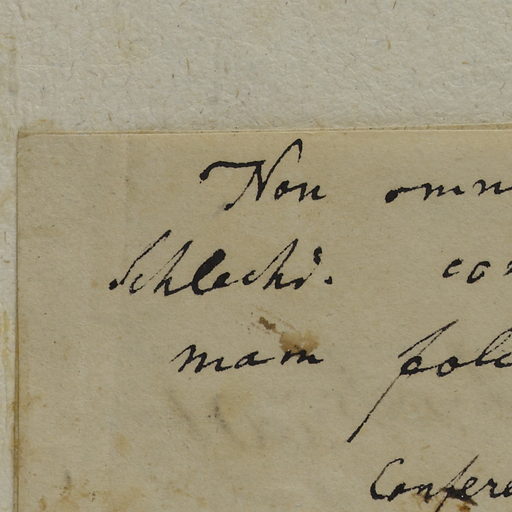 Non omn
Schlechd. con
mam foli
Confere